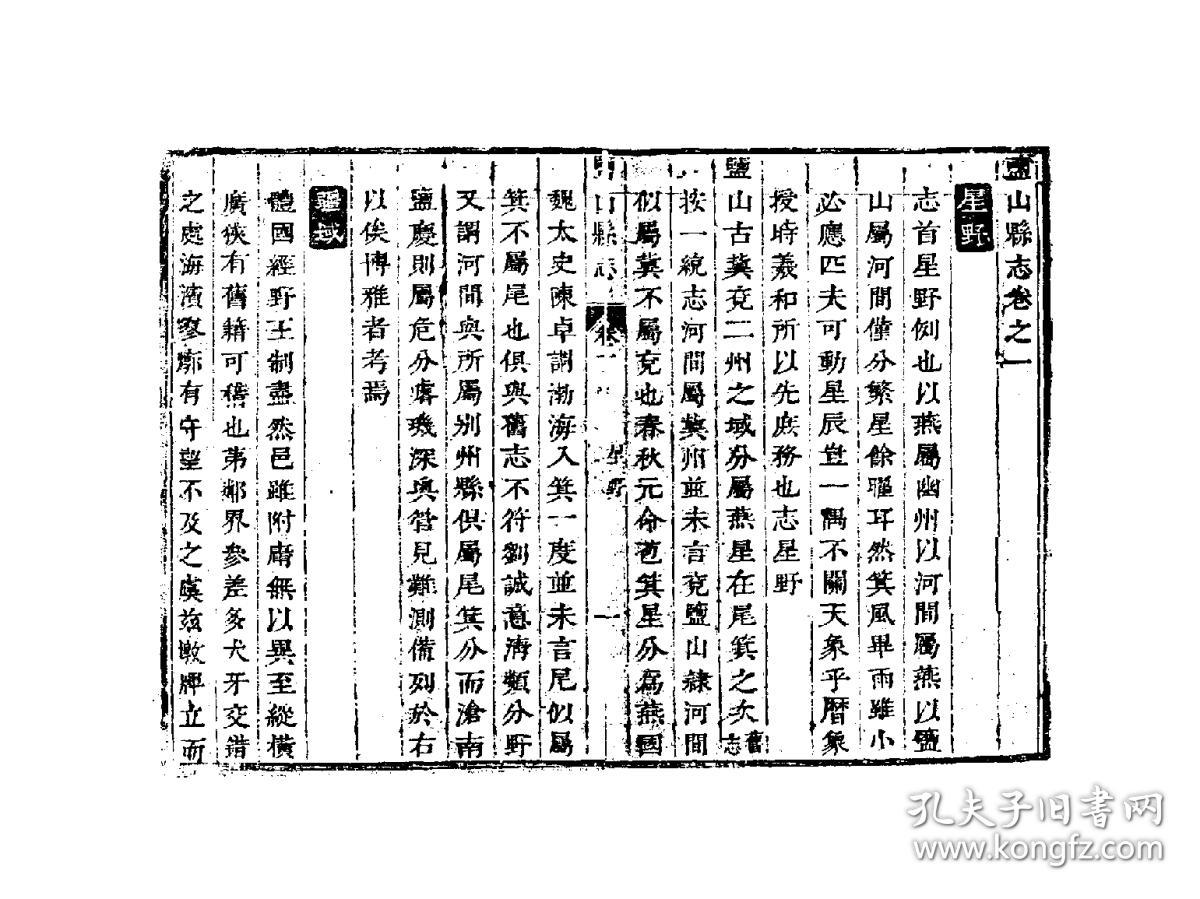 鹽山縣志卷之一
星野
志首星野例也以燕屬幽州以河間屬燕以鹽
山屬河間僅分繁星餘瑾耳然箕風畢雨雖小
必應匹夫可動星辰豈一隅不關天象乎曆象
授時羲和所以先庶務也志星野
鹽山古冀兗二州之域分屬燕星在尾箕之次舊志
按一統志河間屬冀州並未言兗鹽山隸河間
似屬冀不屬兗也春秋元命苞箕星分為燕國
山縣志 卷一 星野 一
魏太史陳卓謂渤海入箕一度並未言尾似屬
箕不屬尾也俱與舊志不符劉誠意濟類分野
又謂河間與所屬別州縣俱屬尾箕分而滄南
鹽慶則屬危分虛璣深奧管見難測備列於右
以俟博雅者考焉
疆域
體國經野王制盡然邑雖附庸無以異至縱橫
廣狹有舊籍可稽也第鄰界參差多犬牙交錯
之處海濱寥廓有守望不及之虞茲墩牌立而
孔夫子旧书网
www.kongfz.com